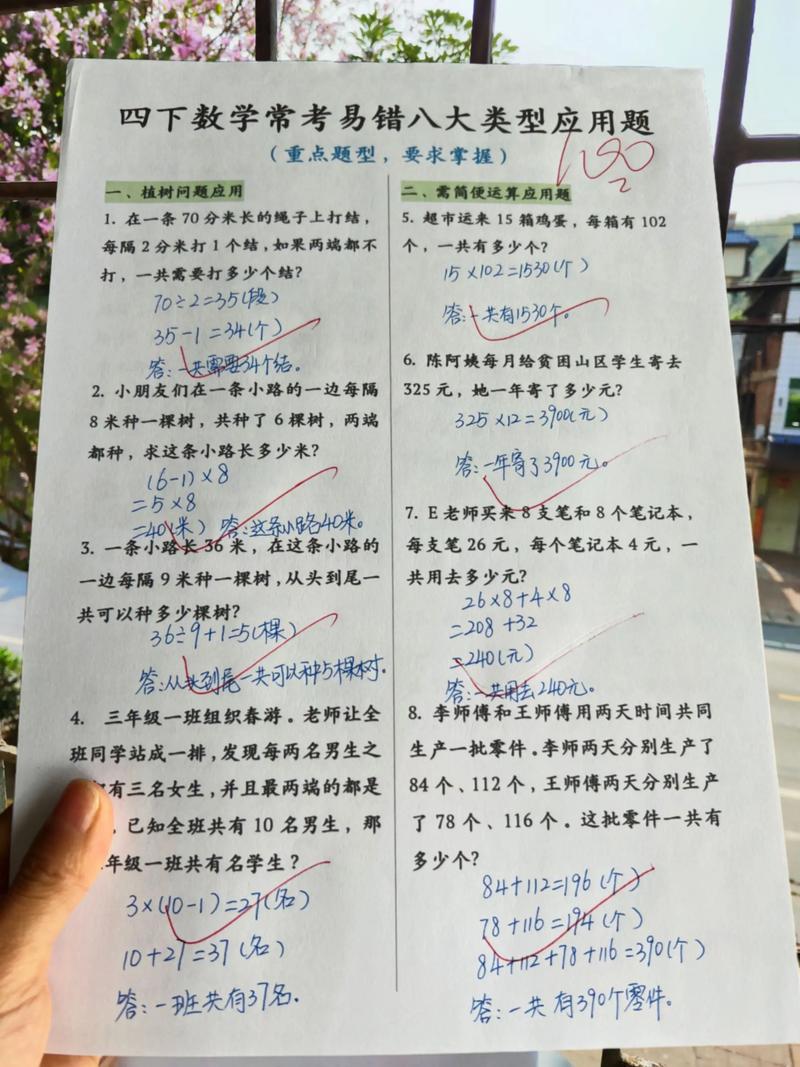 四下数学常考易错八大类型应用题
(重点题型，要求掌握)
100
一、植树问题应用
1. 在一条 70 分米长的绳子上打结，
每隔 2 分米打 1 个结，如果两端都不
打，一共需要打多少个结？
70÷2=35(段)
35-1=34(个)
答：一共需要34个结。
2. 小朋友们在一条小路的一边每隔
8 米种一棵树，共种了 6 棵树，两端
都种，求这条小路长多少米？
(6-1)×8
=5×8
=40(米) 答：这条小路40米。
3. 一条小路长 36 米，在这条小路的
一边每隔 9 米种一棵树，从头到尾一
共可以种多少棵树？
36÷9+1=5(棵)
答：从头到尾一共可以种5棵树.
4. 三年级一班组织春游。老师让全
班同学站成一排，发现每两名男生之
有三名女生，并且最两端的都是
，已知全班共有 10 名男生，那
年级一班共有名学生？
3×(10-1)=27(名)
10+27=37(名)
答：一班共有37名.
二、需简便运算应用题
5. 超市运来 15 箱鸡蛋，每箱有 102
个，一共有多少个？
15×102=1530(个)
答：一共有1530个。
6. 陈阿姨每月给贫困山区学生寄去
325 元，她一年寄了多少元？
325×12=3900(元)
答：一年寄了3900元。
7. E 老师买来 8 支笔和 8 个笔记本，
每支笔 26 元，每个笔记本 4 元，一
共用去多少元？
26×8+4×8
=208+32
=240(元)
答：一共用去240元。
8. 李师傅和王师傅用两天时间共同
生产一批零件。李师两天分别生产了
84 个、112 个，王师傅两天分别生产
了 78 个、116 个。这批零件一共有
多少个？
84+112=196(个)
78+116=194(个)
84+112+78+116=390(个)
答：一共有390个零件。